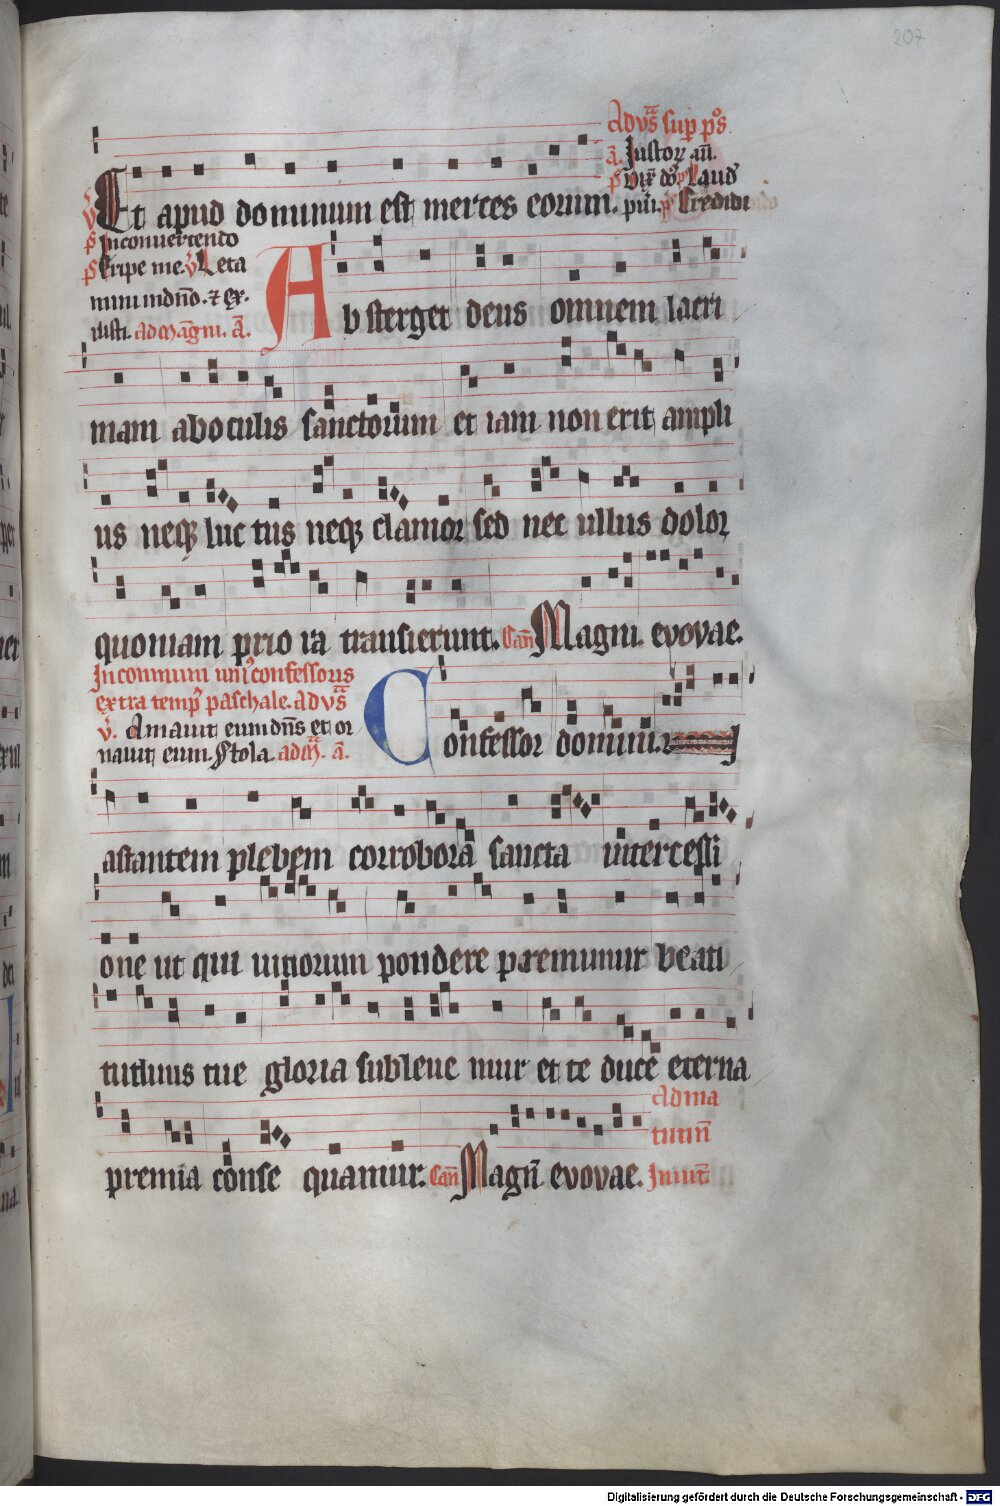 207
Adv̄s̄ sup ps̄.
ā. Iustoꝝ aū.
p̄ Dix̄ dō p̄ Laud
℣ Et apud dominum est merces eorum. pūi. p̄ Credidi
p̄ Inconuertendo
p̄ Eripe me. ℣ Leta
mini indn̄o. ⁊ ex.
iusti. admāgni. ā.
Absterget deus omnem lacri
mam aboculis sanctorum et iam non erit ampli
us neqꝫ luctus neqꝫ clamor sed nec ullus dolor
quoniam priora transierunt. Can̄ Magni. evovae.
Incommuni uniꝰ confessoris
extra tempꝰ paschale. adv̄s̄
℣. Amauit eum dn̄s et or
nauit eum. Stola. adm̄. ā.
Confessor domini.
astantem plebem corrobora sancta intercessi
one ut qui uitiorum pondere premimur beati
tudinis tue gloria subleuemur et te duce eterna
Adma
tutin̄
premia consequamur. Can̄ Magn̄ evovae. Inuit̄
Digitalisierung gefördert durch die Deutsche Forschungsgemeinschaft - DFG